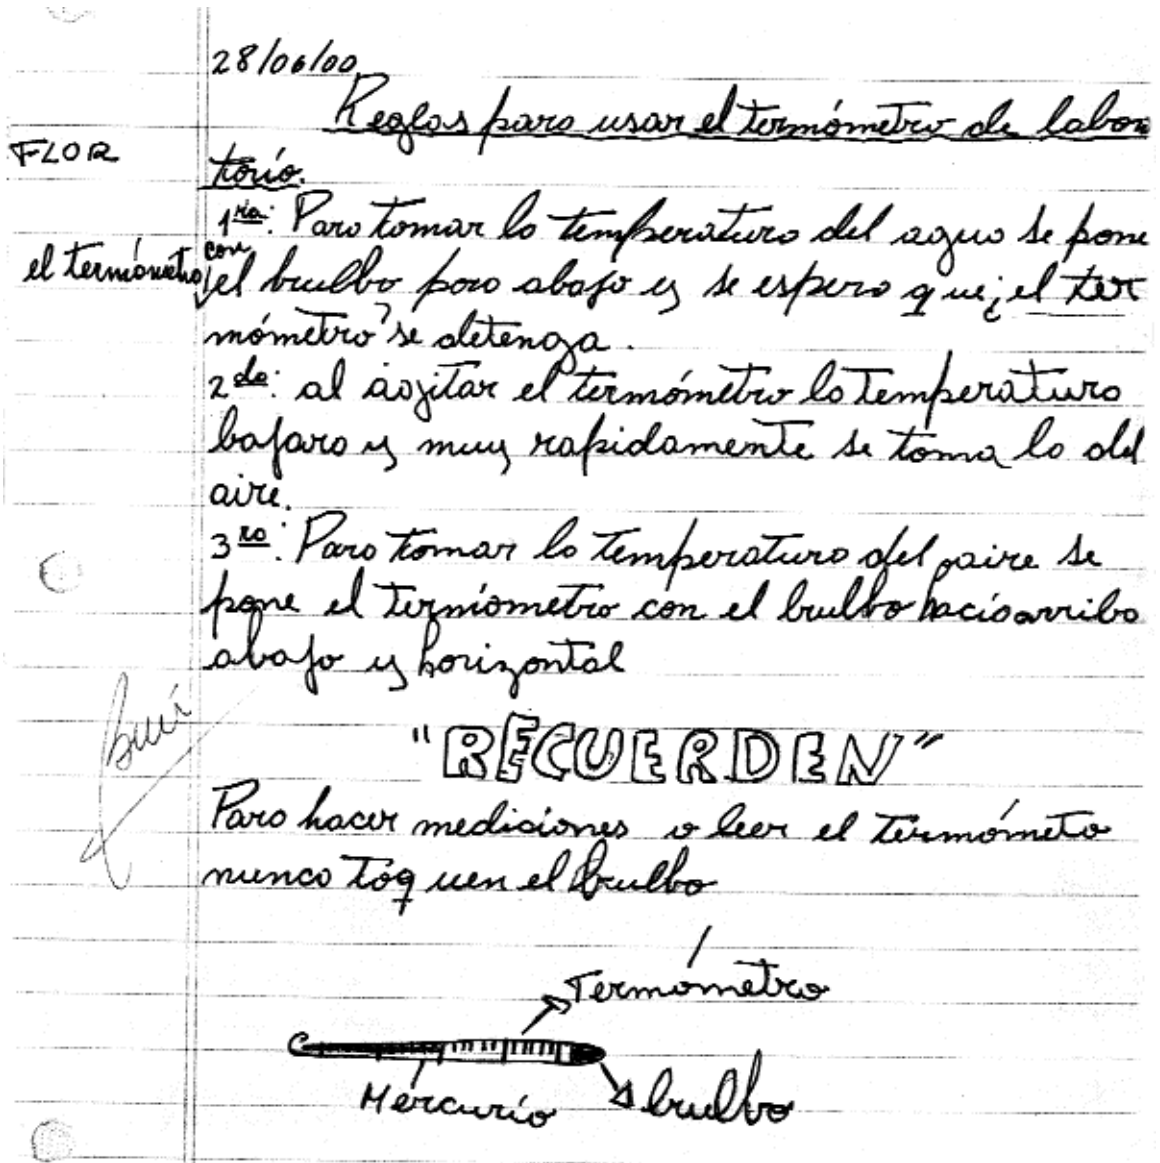 28/06/00
Reglas para usar el termómetro de labora
torio.
FLOR
1ra: Para tomar la temperatura del agua se pone
el termómetro con
el brulbo para abajo y se espera que ¿el ter
mómetro? se detenga.
2da: al agitar el termómetro la temperatura
bajara y muy rapidamente se toma la del
aire.
3ra: Para tomar la temperatura del aire se
pone el termómetro con el brulbo hacia arriba
abajo y horizontal
"RECUERDEN"
Para hacer mediciones o leer el termómeto
nunca toquen el brulbo
Termómetro
Mercurio
brulbo